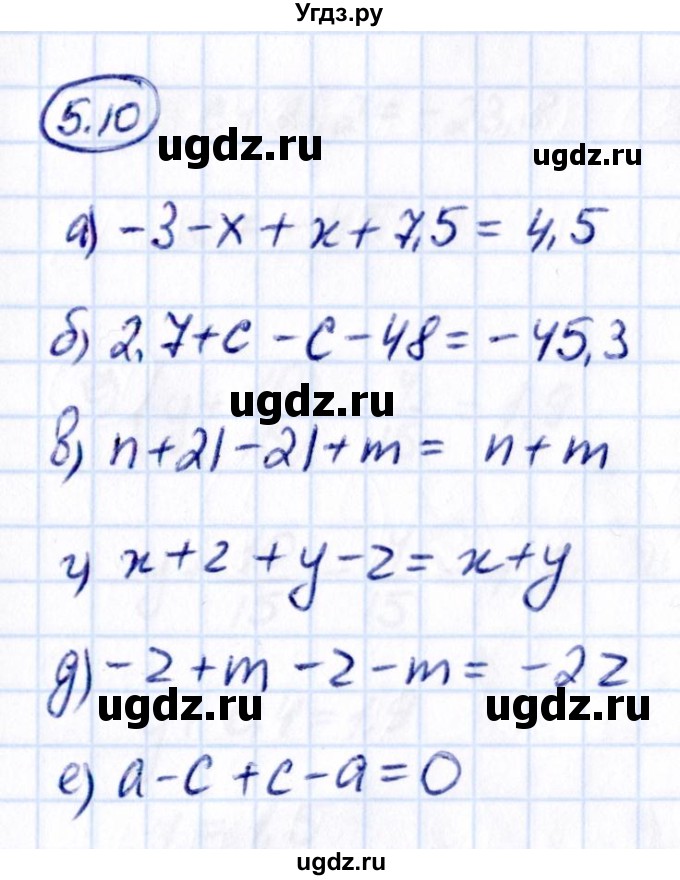 Угдз.ру
5.10
ugdz.ru
ugdz.ru
а) -3-x+x+7,5=4,5
б) 2,7+c-c-48=-45,3
ugdz.ru
в) n+21-21+m= n+m
г) x+z+y-z=x+y
д) -z+m-z-m= -2z
ugdz.ru
ugdz.ru
е) a-c+c-a=0
ugdz.ru